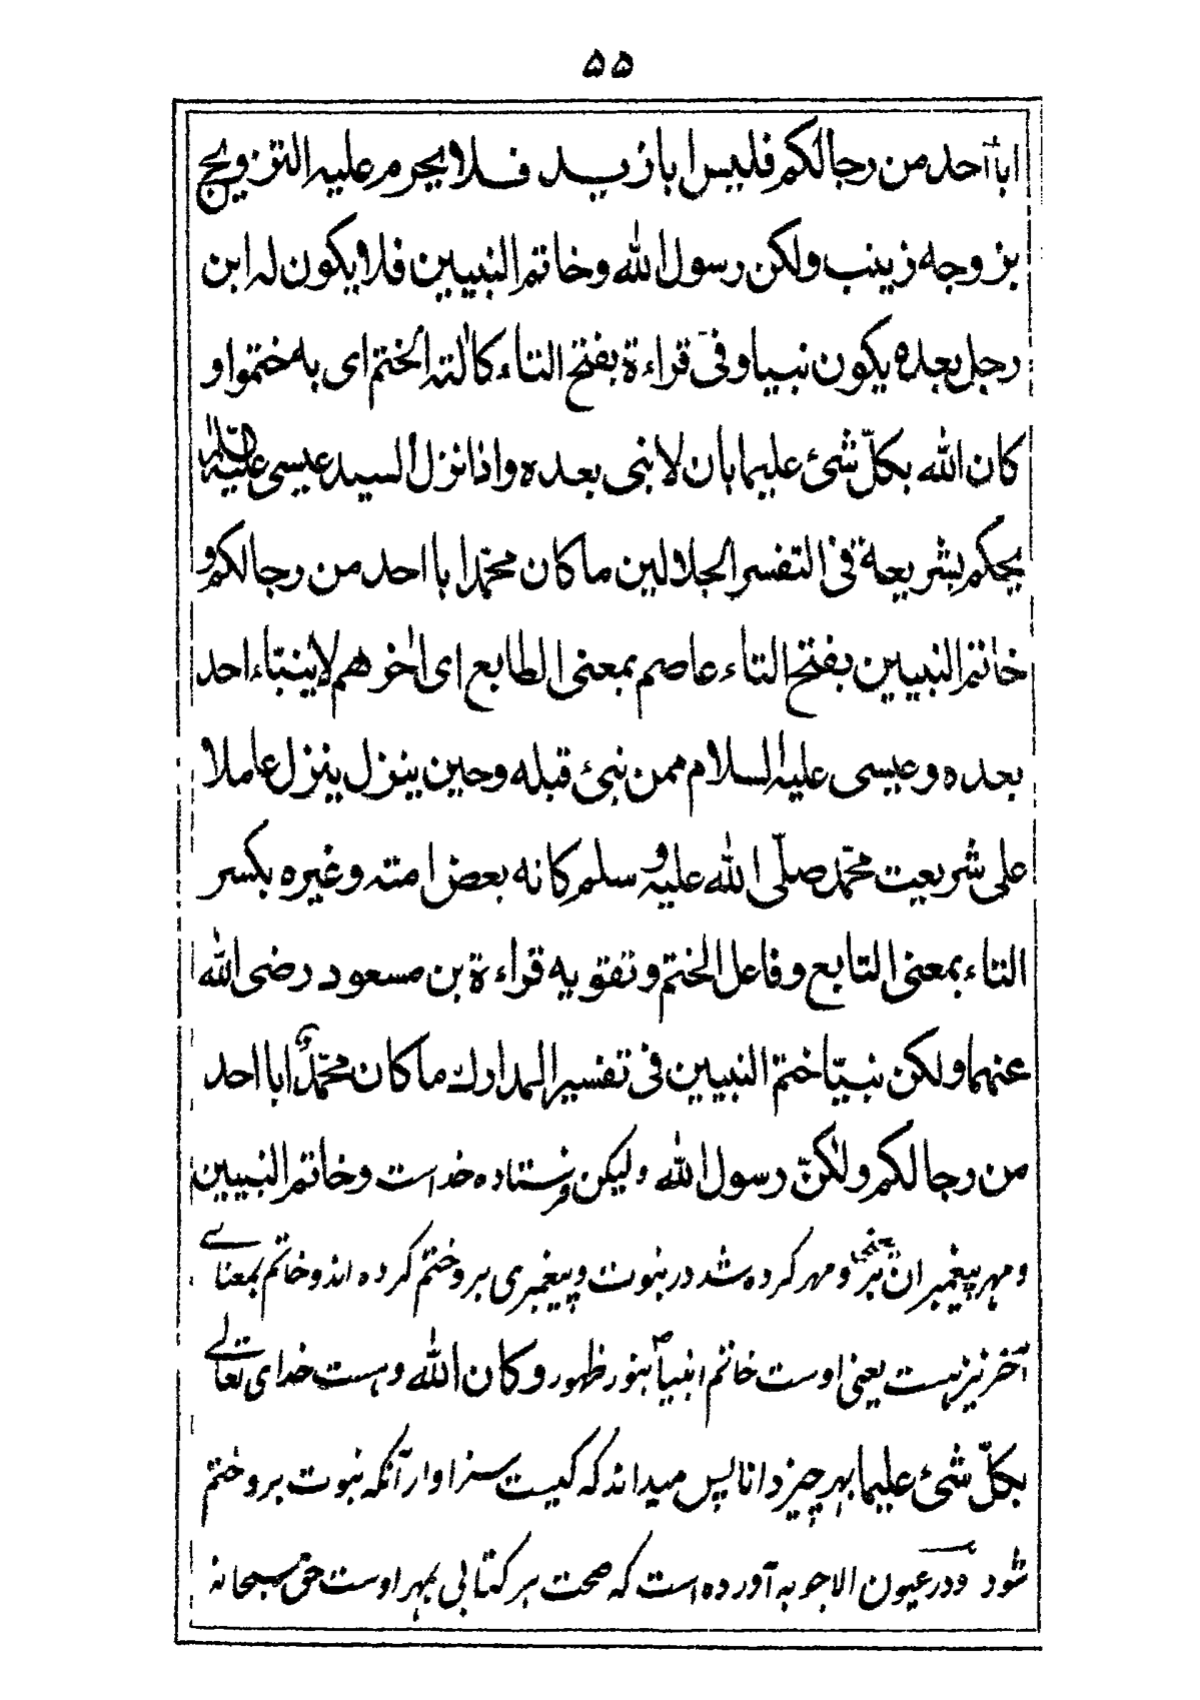 ۵۵
ابا احد من رجالكم فليس ابا زيد فلا يحرم عليه التزويج
بزوجه زينب ولكن رسول الله وخاتم النبيين فلا يكون له ابن
رجل بعده يكون نبيا وفى قراءة بفتح التاء كالته الختم اى به ختموا و
كان الله بكلّ شئ عليما بان لا نبى بعده واذا نزل السيد عيسى عليه السلام
يحكم بشريعة فى التفسر الجلالين ما كان محمّد ابا احد من رجالكم و
خاتم النبيين بفتح التاء عاصم بمعنى الطابع اى اخرهم لا ينبّاء احد
بعده وعيسى عليه السلام ممن نبئ قبله وحين ينزل ينزل عاملا
على شريعت محمّد صلّى الله عليه و سلم كانه بعض امته وغيره بكسر
التاء بمعنى التابع وفاعل الختم وتقويه قراءة بن مسعود رضى الله
عنهما ولكن نبيّا ختم النبيين فى تفسير المدارك ما كان محمّد ابا احد
من رجالكم ولكنّ رسول الله وليكن فرستاده خداست وخاتم النبيين
ومهر پيغمبران يعنى بر ومهر كرده شد در نبوت وپيغمبرى بر وختم كرده اند وخاتم بمعناے
آخر نيز هست يعنى اوست خاتم انبيا بنور ظهور وكان الله وهست خداى تعالے
بكلّ شئ عليما بهر چيز دانا پس ميداند كه كيست سزاوار آنكه نبوت بر وختم
شود ودر عيون الاجوبه آورده است كه صحت هر كتابى بمهر اوست حق سبحانه